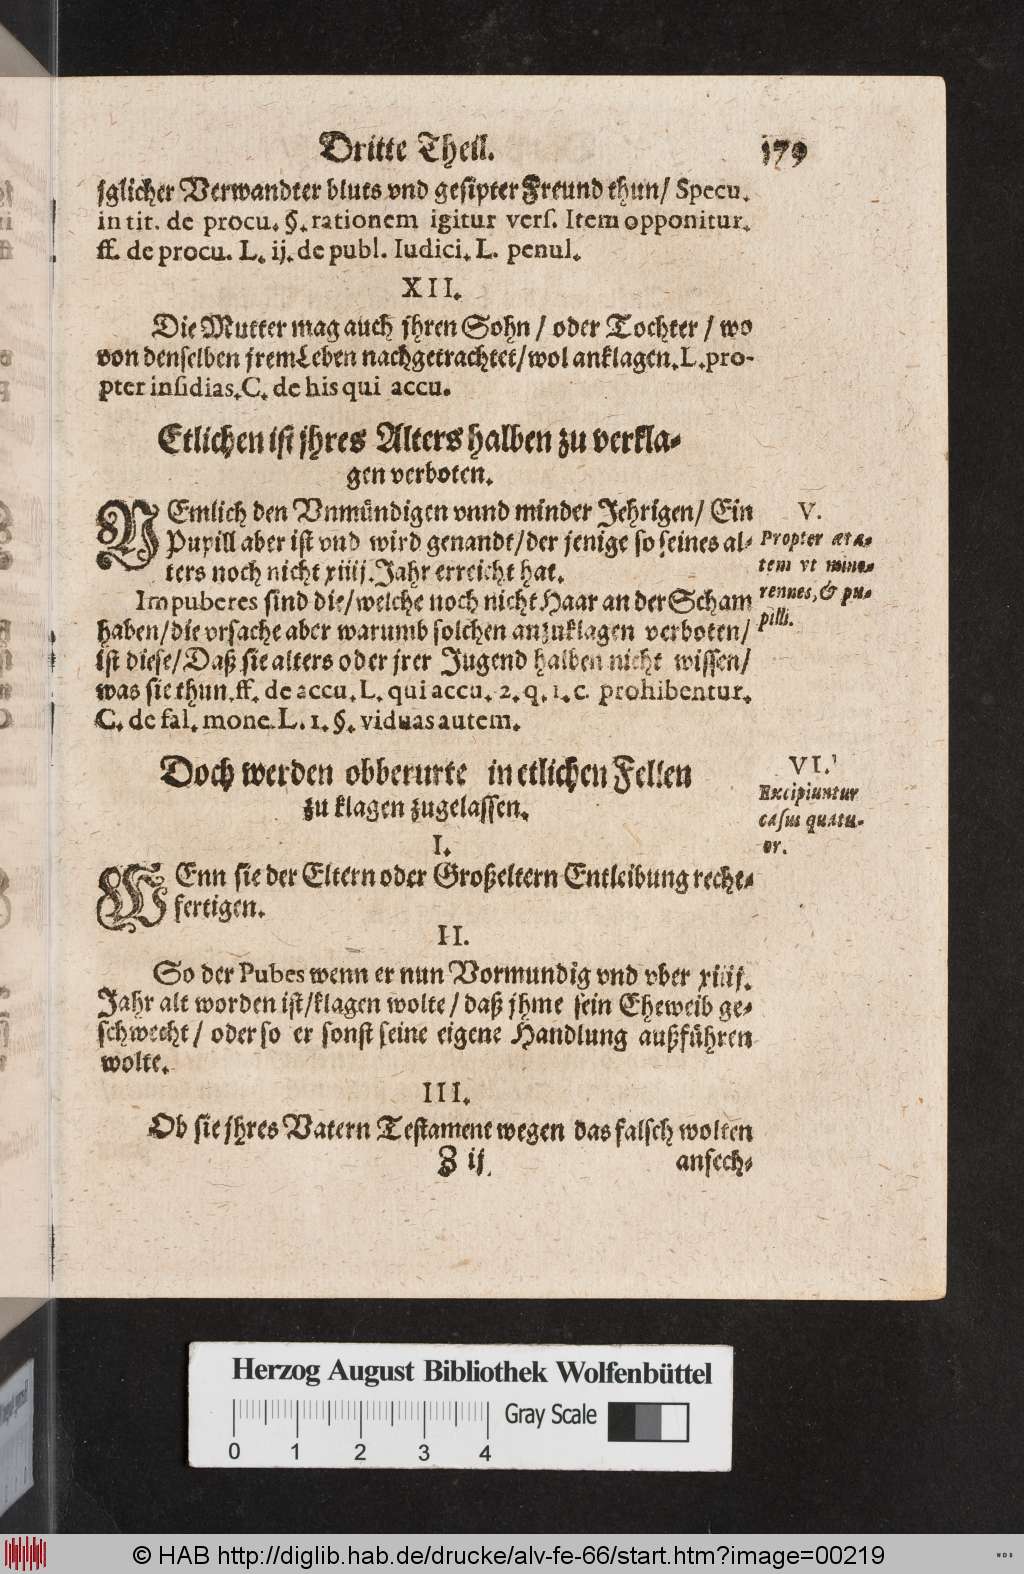 Dritte Theil. 179
jglicher Verwandter bluts vnd gesipter Freund thun/ Specu.
in tit. de procu. §. rationem igitur vers. Item opponitur.
ff. de procu. L. ij. de publ. Iudici. L. penul.
XII.
Die Mutter mag auch jhren Sohn / oder Tochter / wo
von denselben jrem Leben nachgetrachtet/ wol anklagen. L. pro-
pter insidias. C. de his qui accu.
Etlichen ist jhres Alters halben zu verkla-
gen verboten.
NEmlich den Vnmündigen vnnd minder Jehrigen/ Ein
Pupill aber ist vnd wird genandt/ der jenige so seines al-
ters noch nicht xiiij. Jahr erreicht hat.
V.
Propter æta-
tem vt mino-
rennes, & pu-
pilli.
Impuberes sind die/ welche noch nicht Haar an der Scham
haben/ die vrsache aber warumb solchen anzuklagen verboten/
ist diese/ Daß sie alters oder jrer Jugend halben nicht wissen/
was sie thun. ff. de accu. L. qui accu. 2. q. 1. c. prohibentur.
C. de fal. mone. L. 1. §. viduas autem.
Doch werden obberurte in etlichen Fellen
zu klagen zugelassen.
VI.
Excipiuntur
casus quatu-
or.
I.
WEnn sie der Eltern oder Großeltern Entleibung recht-
fertigen.
II.
So der Pubes wenn er nun Vormundig vnd vber xiiij.
Jahr alt worden ist/ klagen wolte / daß jhme sein Eheweib ge-
schwecht / oder so er sonst seine eigene Handlung außführen
wolte.
III.
Ob sie jhres Vatern Testament wegen das falsch wolten
Z ij ansech-
Herzog August Bibliothek Wolfenbüttel
Gray Scale
0 1 2 3 4
© HAB http://diglib.hab.de/drucke/alv-fe-66/start.htm?image=00219